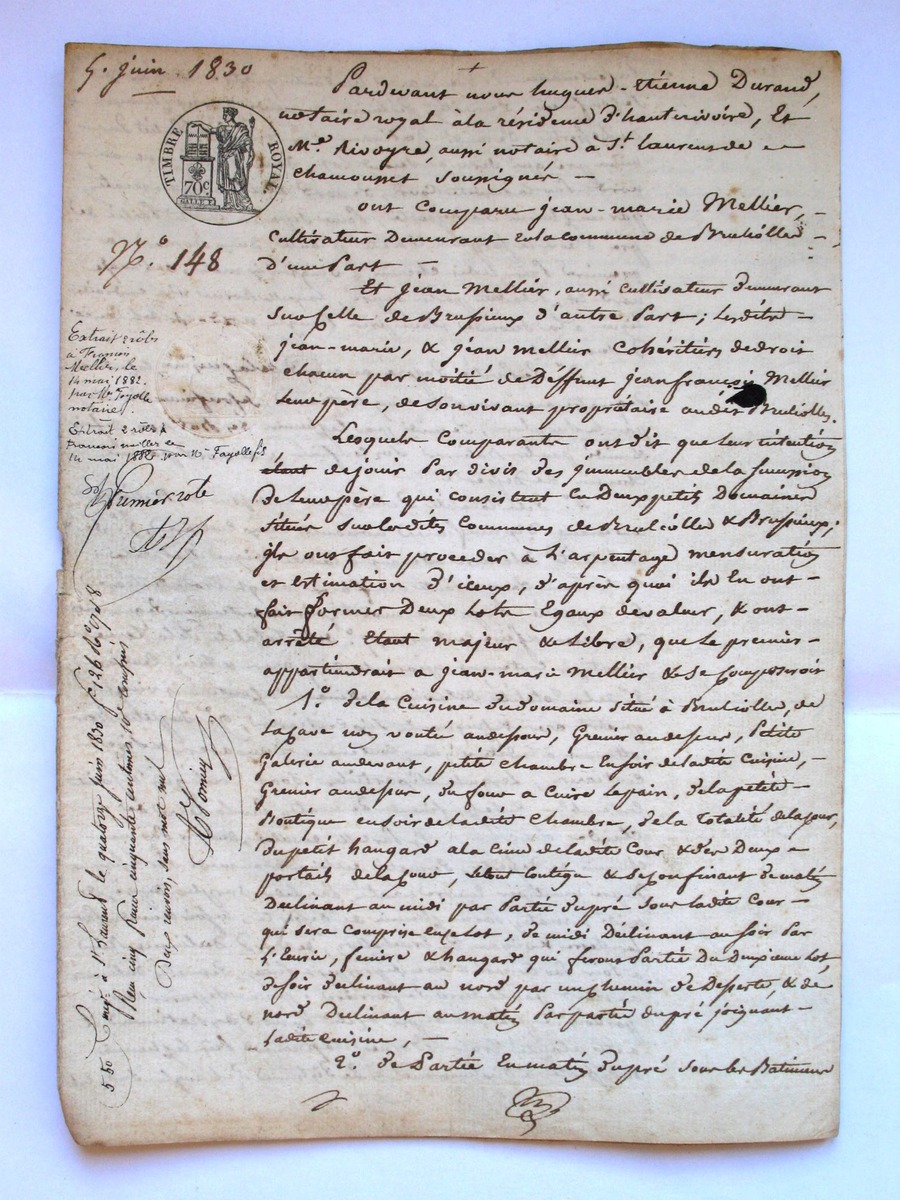 5. juin 1830
TIMBRE ROYAL
70c
Nº. 148
Extrait 2 rôles
à François
Mellier, le
14 mai 1882.
par Me Fayolle
notaire.
Extrait 2 rôles à
François mellier le
14 mai 1882 par Me Fayolle fils
Premier role
Enregé à St Laurent le quatorze juin 1830 fº 126
Reçu cinq francs cinquante centimes, 10e compris
Deux renvois, sans mot nul
5 50
Pardevant nous hugues-étienne Durand,
notaire royal à la résidence d'hauterivoire, Et
Me. Rivoyre, aussi notaire à St. laurent de
chamousset soussignés —
ont comparu jean-marie Mellier,
cultivateur Demeurant sur la commune de Brulliolles
d'une Part —
Et jean Mellier, aussi cultivateur demeurant
sur Celle de Brussieux d'autre Part ; lesdits
jean-marie, & jean mellier cohéritiers de droit
chacun par moitié de Déffunt jean françois Mellier
leur père, de son vivant propriétaire audit Brulliolles.
Lesquels Comparants ont dit que leur intention
étant de jouir Par divis des jmmeubles de la succession
de leur père qui consistent en Deux petits Domaines
situés sur lesdites Communes de Brulliolle & Brussieux ;
jls ont fait proceder à l'arpentage mensuration
et Estimation d'iceux, d'après quoi ils En ont
fait former Deux Lots Egaux de valeur, & ont
arrêté Etant majeur & Libre, que Le premier
appartiendrait a jean-marie Mellier & Se Composeroit
1º. de la Cuisine du domaine situé à Brulliolle, de
la cave non voutée audessous, Grenier audessus, Petite
Galerie audevant, petite chambre En soir de ladite Cuisine,
Grenier audessus, du four a Cuire Le pain, de la petite
Boutique en soir de ladite Chambre, de la Totalité de la cour,
du petit hangard a la Cime de ladite Cour & des Deux
portails de la Cour, le tout Contigu & se Confinant de matin
Declinant au midi par Partie du pré sous ladite Cour
qui sera Comprise en ce lot, de midi Déclinant au soir Par
l'Ecurie, feniere & hangard qui feront Partie Du Deuxieme Lot,
de soir declinant au nord par un chemin de Desserte, & de
nord Declinant au matin Par partie du pré joignant
ladite cuisine, —
2º. de Partie En matin du pré sous les Batiments